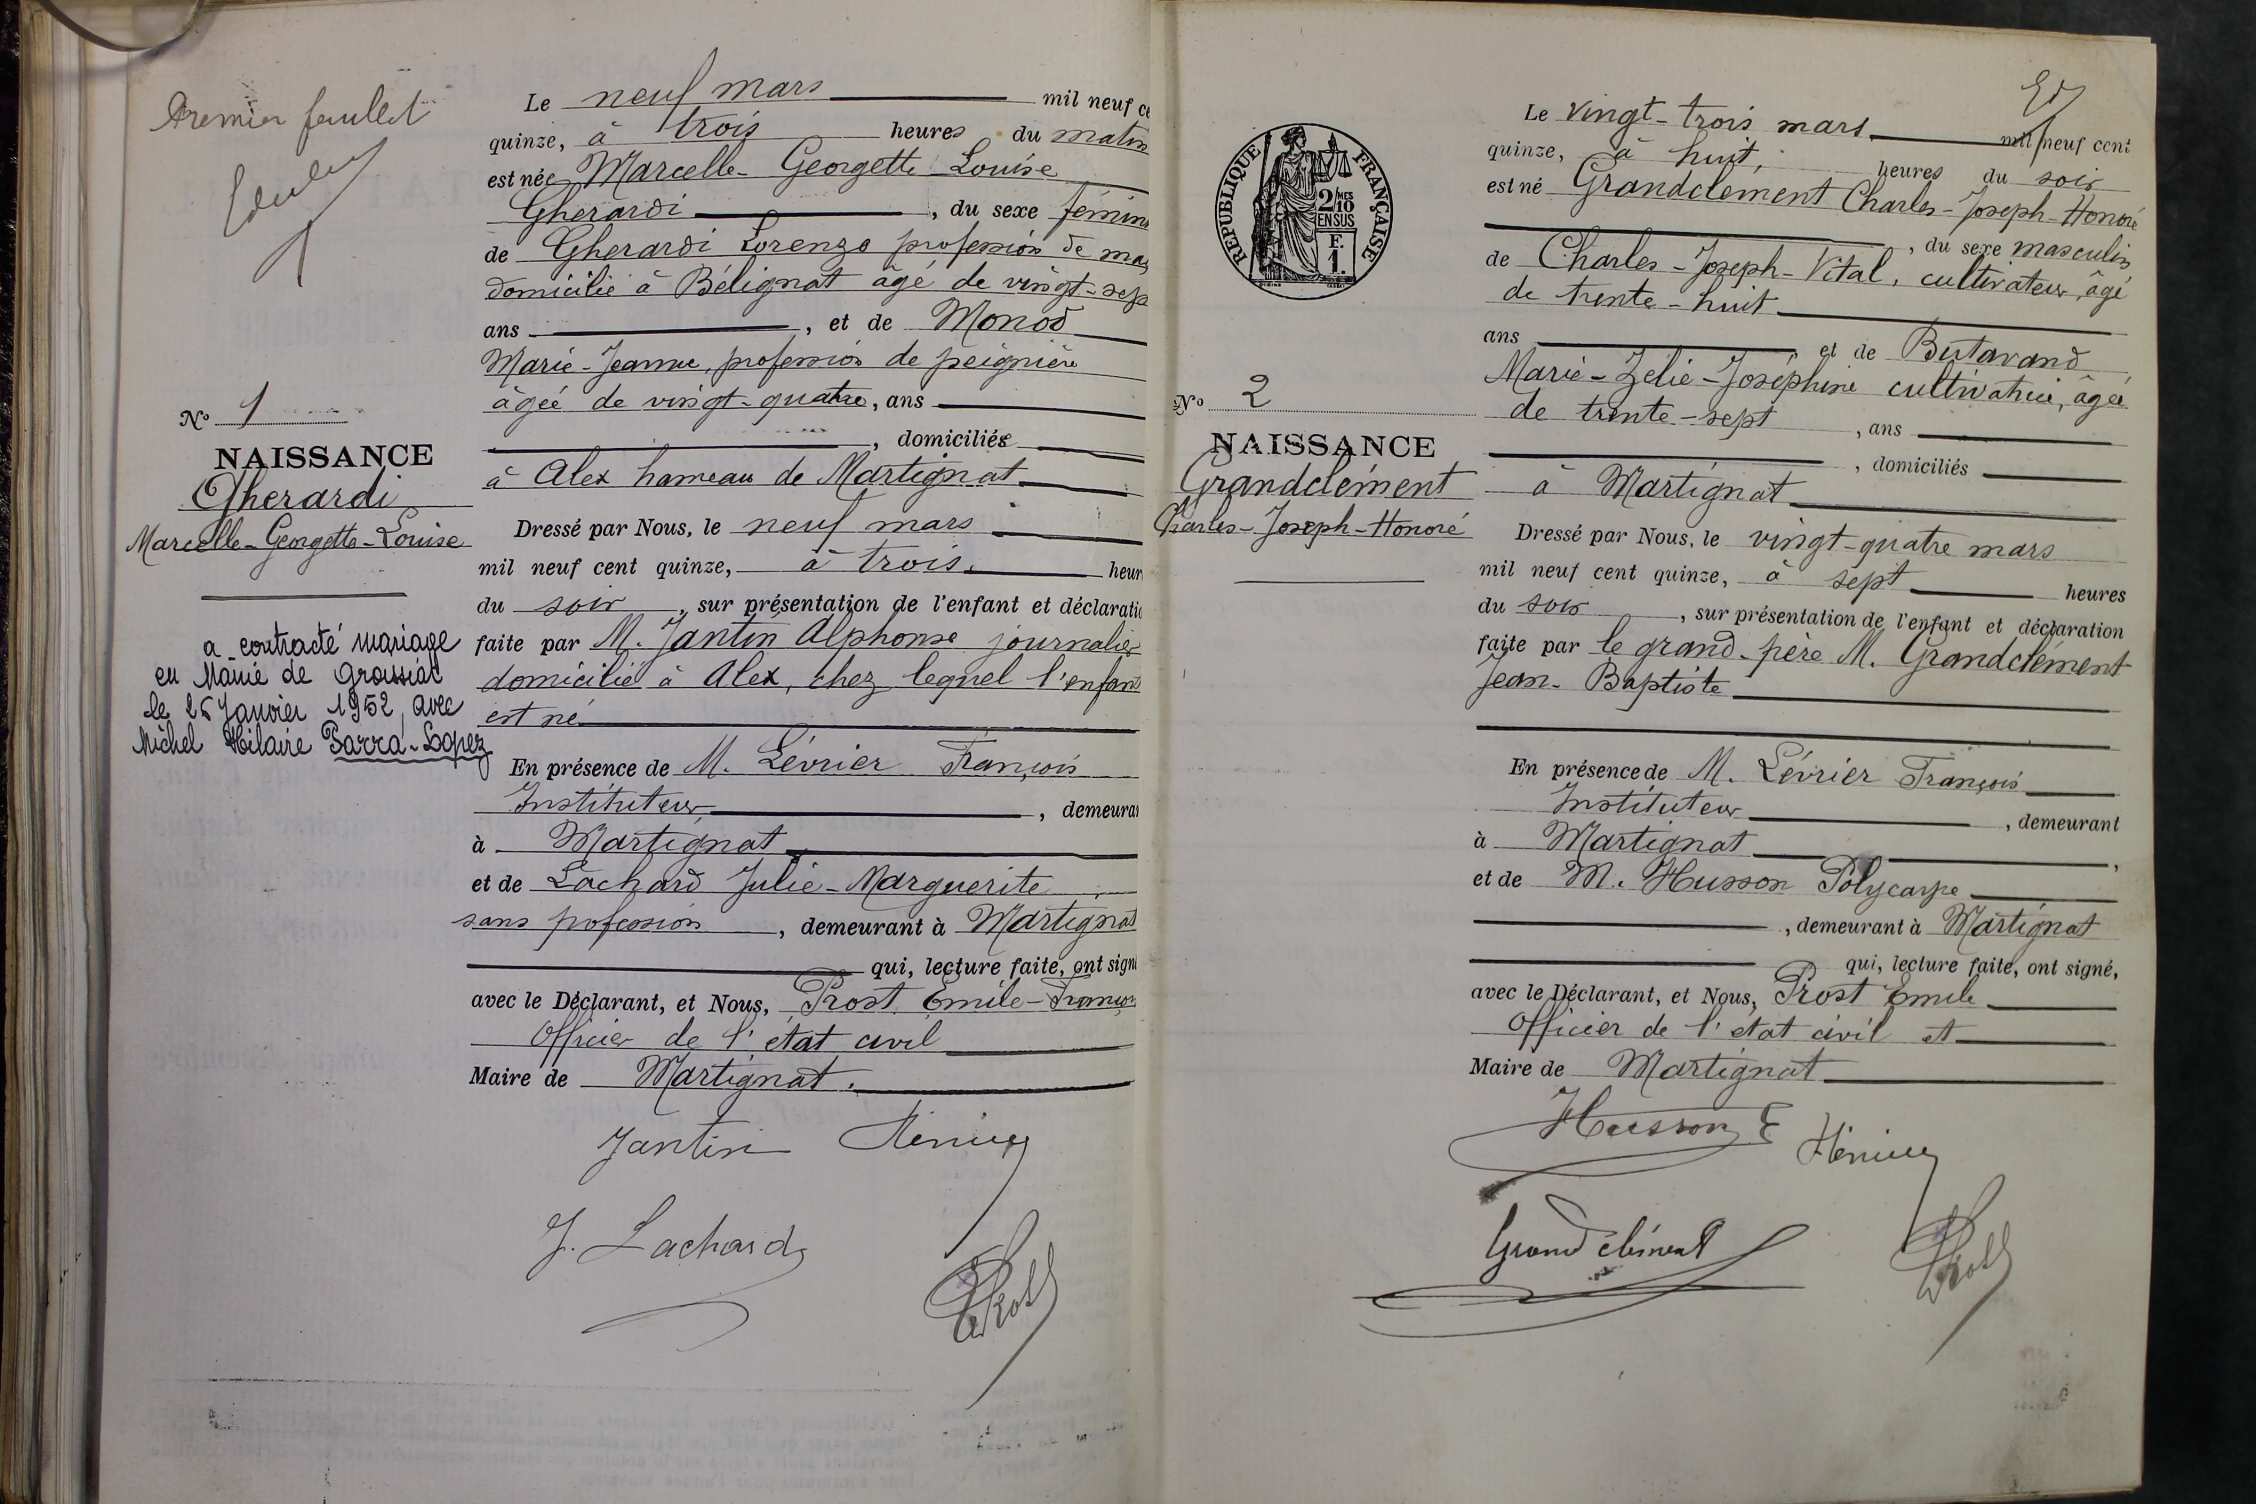 Premier feuillet
Le neuf mars mil neuf ce
quinze, à trois heures du matin
est née Marcelle-Georgette Louise
Gherardi, du sexe fémini
de Gherardi Lorenzo profession de maç
domicilié à Bélignat âgé de vingt-sept
ans, et de Monod
Marie-Jeanne, profession de peignière
âgée de vingt-quatre, ans
, domiciliés
à Alex hameau de Martignat
Dressé par Nous, le neuf mars
mil neuf cent quinze, à trois heur
du soir, sur présentation de l'enfant et déclaratio
faite par M. Jantin Alphonse journalier
domicilié à Alex, chez lequel l'enfant
est né
En présence de M. Lévrier François
Instituteur, demeuran
à Martignat
et de Lachard Julie-Marguerite
sans profession, demeurant à Martignat
qui, lecture faite, ont signé
avec le Déclarant, et Nous, Prost Emile-François
Officier de l'etat civil
Maire de Martignat.
Jantin
J. Lachard
Prost
No 1
NAISSANCE
Gherardi
Marcelle-Georgette-Louise
a contracté mariage
en Mairie de Groissiat
le 25 Janvier 1952, avec
Michel Hilaire Parra-Lopez
REPUBLIQUE FRANÇAISE
2/MES
10
EN SUS
F.
1.
No 2
NAISSANCE
Grandclément
Charles-Joseph-Honoré
Le vingt-trois mars mil neuf cent
quinze, à huit, heures du soir
est né Grandclément Charles-Joseph-Honoré
, du sexe masculin
de Charles-Joseph-Vital, cultivateur, âgé
de trente-huit
ans et de Butavand
Marie-Zélie-Joséphine cultivatrice, âgée
de trente-sept, ans
, domiciliés
à Martignat
Dressé par Nous, le vingt-quatre mars
mil neuf cent quinze, à sept heures
du soir, sur présentation de l'enfant et déclaration
faite par le grand-père M. Grandclément
Jean-Baptiste
En présence de M. Lévrier François
Instituteur, demeurant
à Martignat,
et de M. Husson Polycarpe
, demeurant à Martignat
qui, lecture faite, ont signé,
avec le Déclarant, et Nous, Prost Emile
Officier de l'etat civil et
Maire de Martignat
Husson
Grandclément
Prost